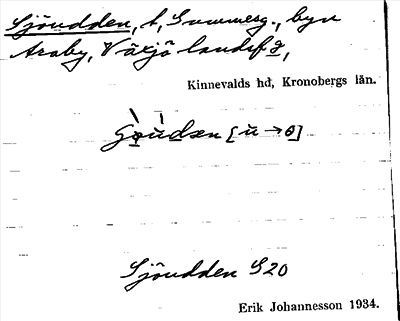 Sjöudden, t, Gummesg., byn
Araby, Växjö landsf g,
Kinnevalds hd, Kronobergs län.
Sjöudden S20
Erik Johannesson 1934.